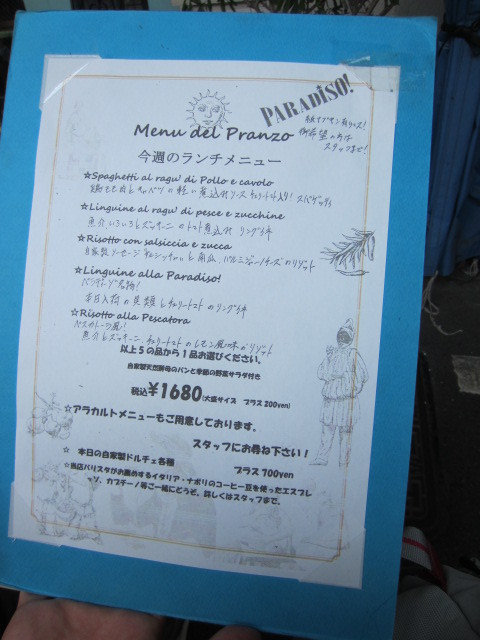 PARADISO!
スタッフまで!
Menu del Pranzo
今週のランチメニュー
☆Spaghetti al ragu' di Pollo e cavolo
☆Linguine al ragu' di pesce e zucchine
魚介いろいろとズッキーニのトマト煮込み リングイネ
☆Risotto con salsiccia e zucca
☆Linguine alla Paradiso!
パラディーゾ名物!
本日入荷の貝類とチェリートマトのリングイネ
☆Risotto alla Pescatora
ペスカトーラ風!
魚介とズッキーニ、チェリートマトのレモン風味のリゾット
以上5の品から1品お選びください。
自家製天然酵母のパンと季節の野菜サラダ付き
税込¥1680(大盛サイズ プラス 200yen)
☆アラカルトメニューもご用意しております。
スタッフにお尋ね下さい!
☆ 本日の自家製ドルチェ各種 プラス 700yen
☆当店バリスタがお薦めするイタリア・ナポリのコーヒー豆を使ったエスプレ
ッソ、カプチーノ等ご一緒にどうぞ、詳しくはスタッフまで、